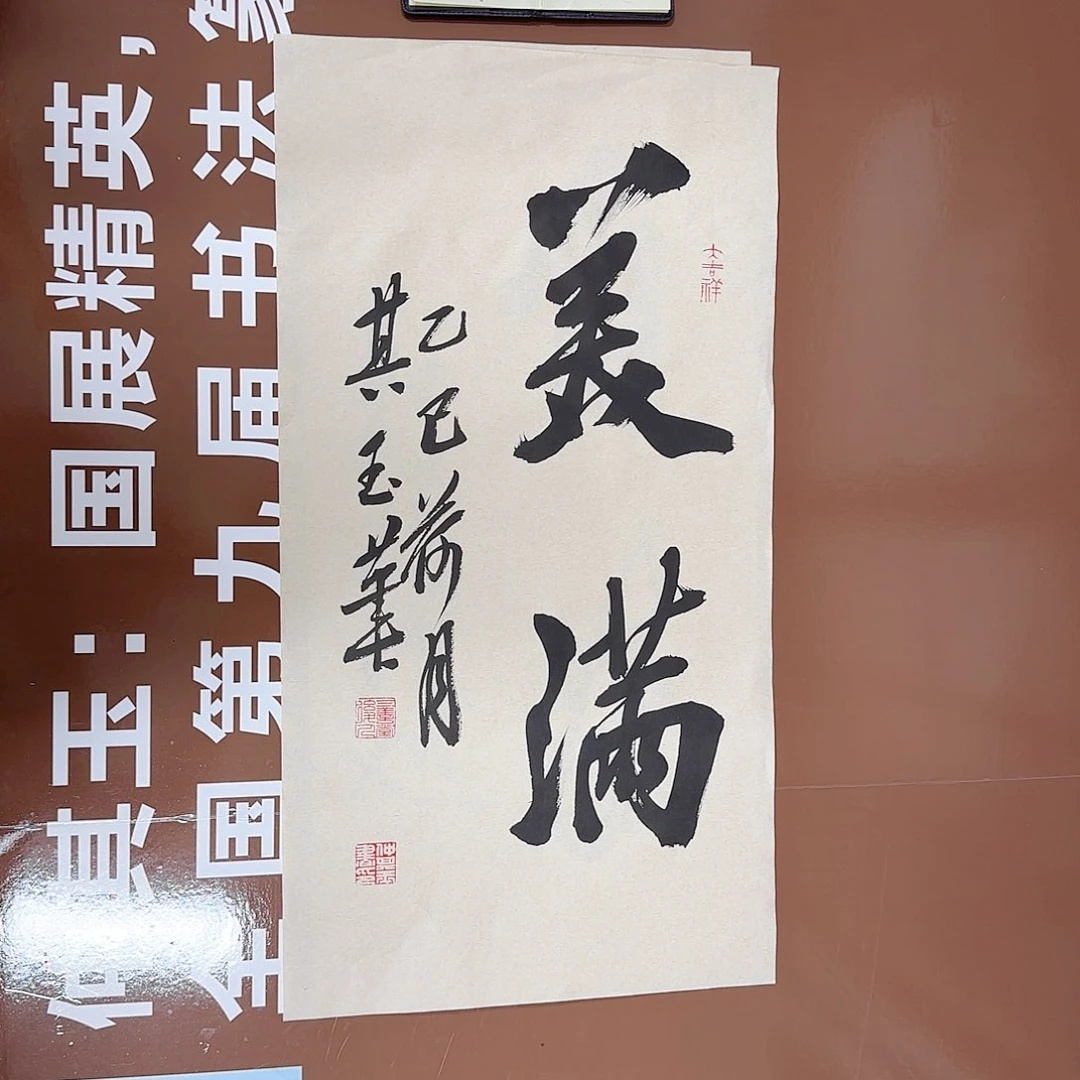 美满
乙巳荷月
其玉书
大吉祥
仲其玉：国展精英，
全国第九届书法篆